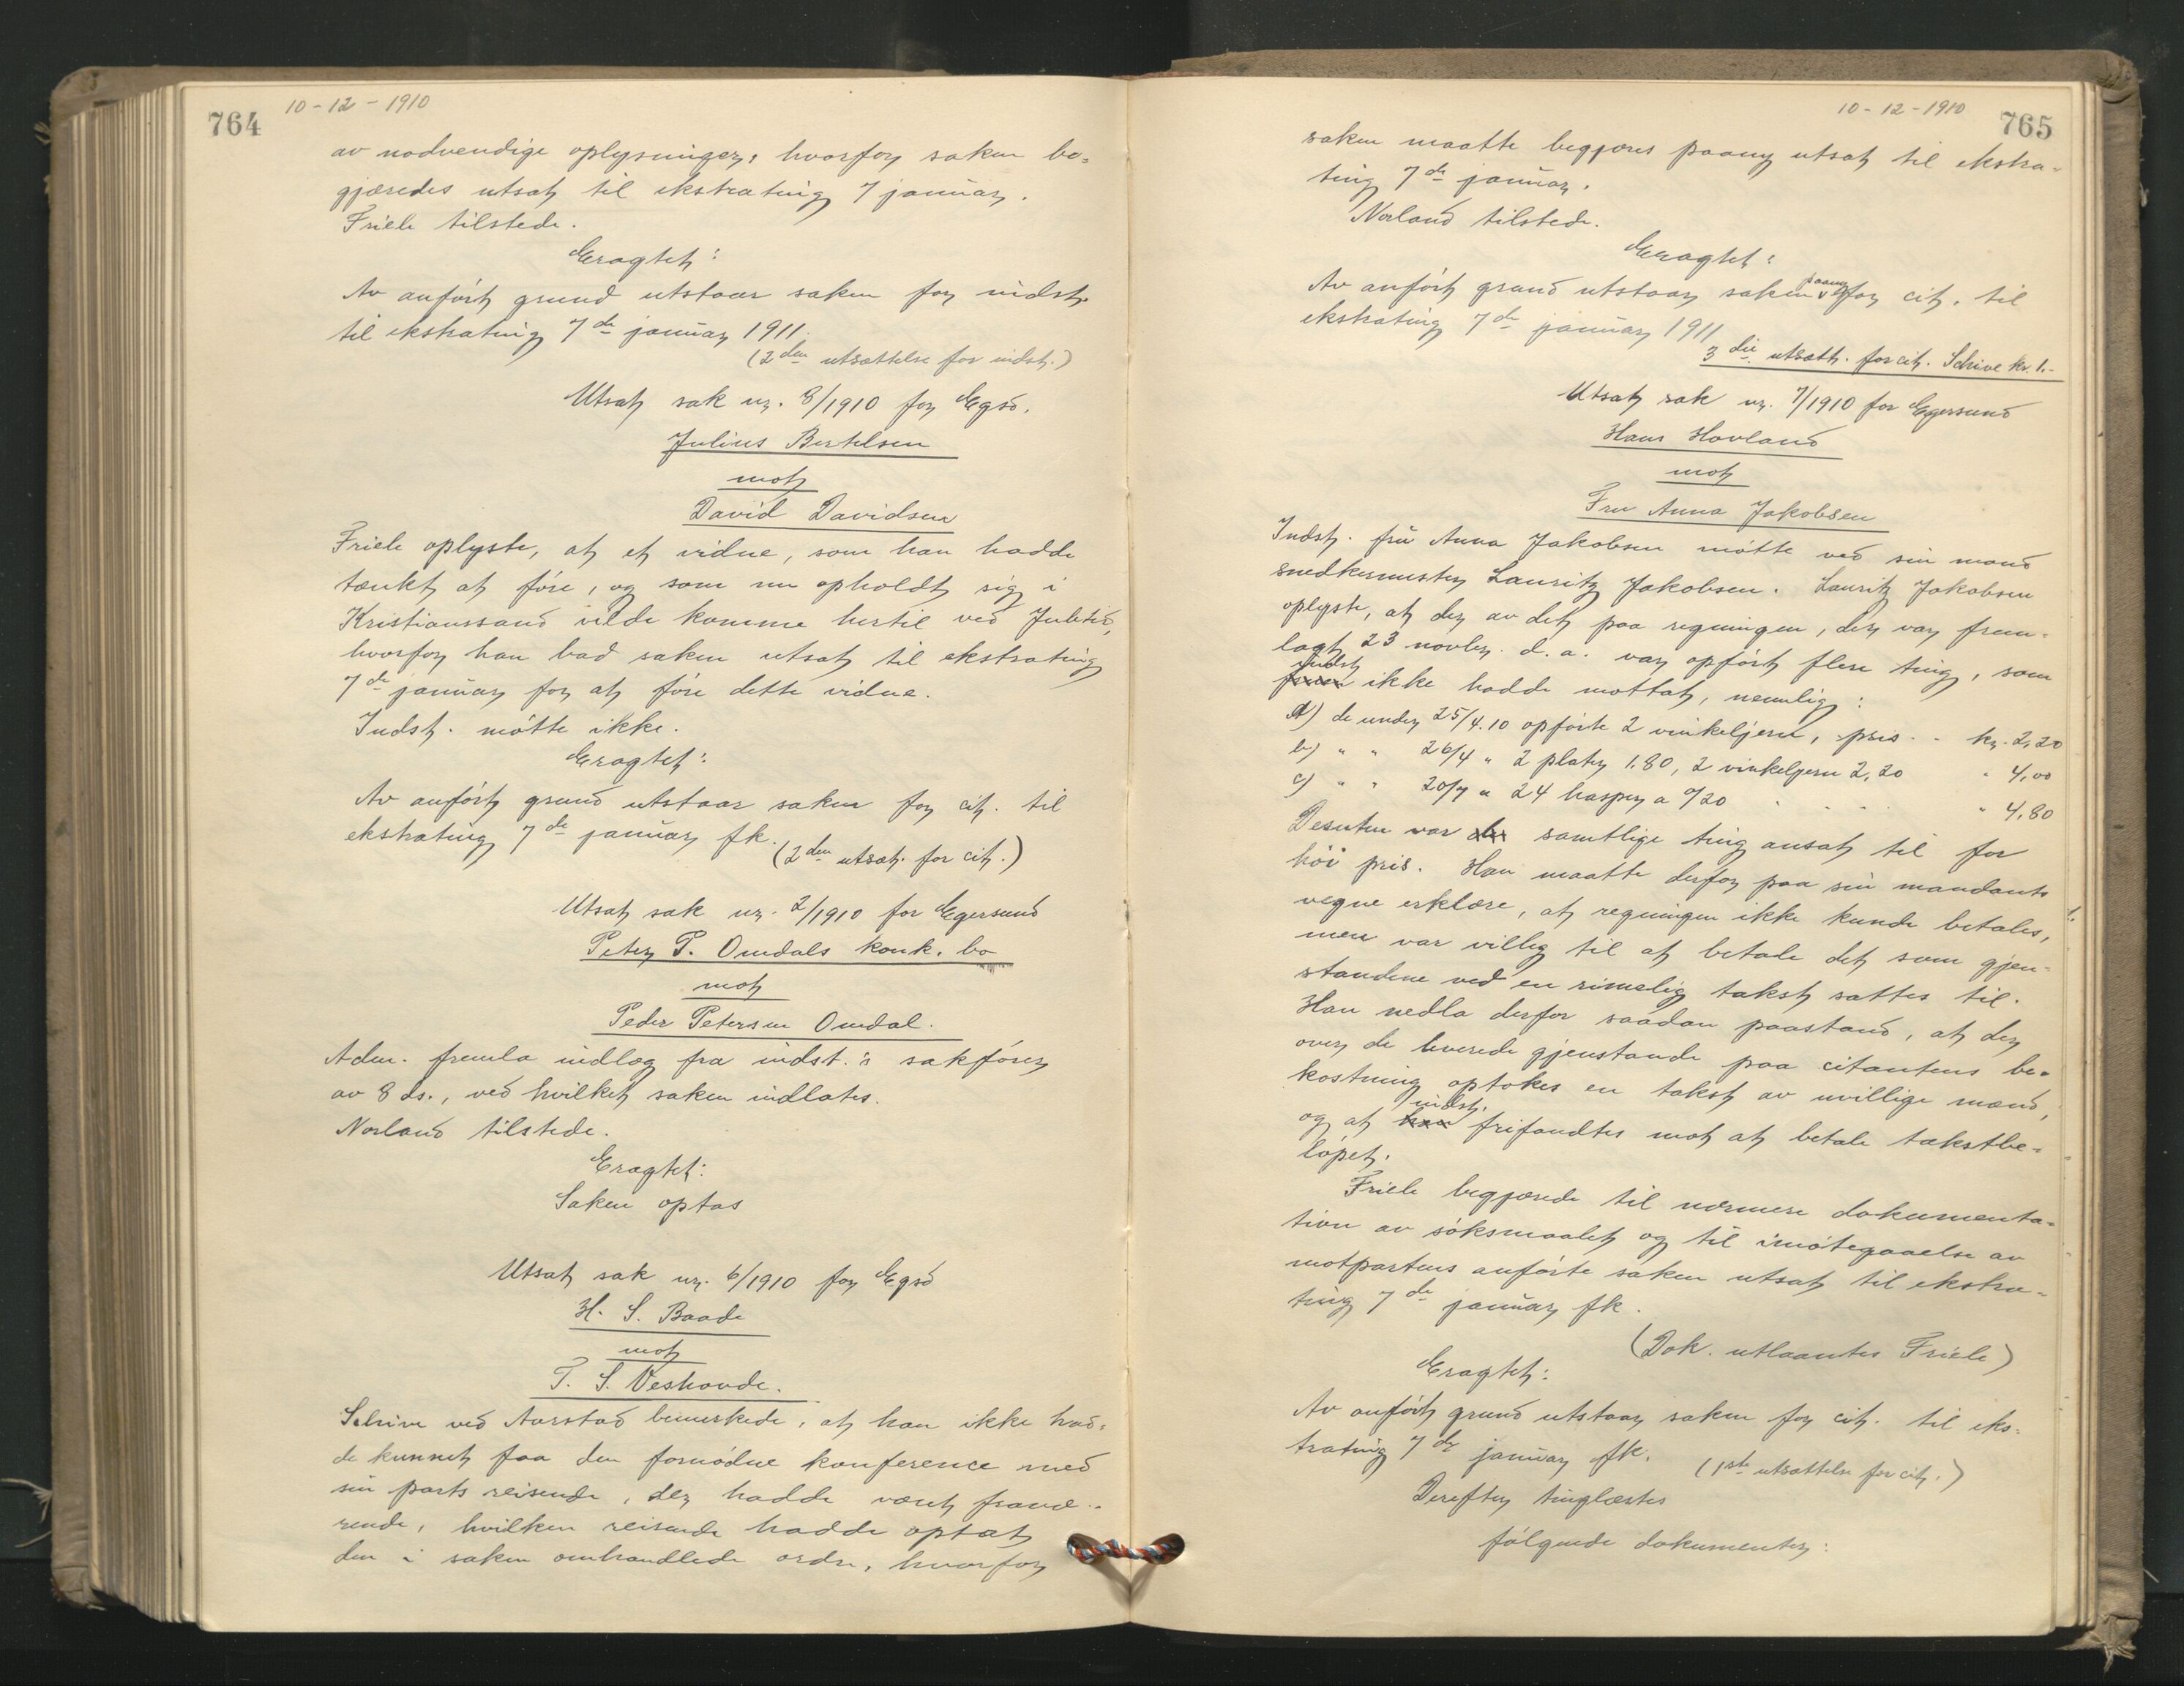 764
10-12-1910
av nødvendige oplysninger, hvorfor saken be-
gjæredes utsat til ekstrating 7 januar.
Friele tilstede.
Eragtet:
Av anført grund utstaar saken for indst.
til ekstrating 7de januar 1911.
(2den utsættelse for indst.)
Utsat sak nr. 8/1910 for Egsd.
Julius Bertelsen
mot
David Davidsen
Friele oplyste, at et vidne, som han hadde
tænkt at føre, og som nu opholdt sig i
Kristianssand vilde komme hertil ved Juletid,
hvorfor han bad saken utsat til ekstrating
7de januar for at føre dette vidne.
Indst. møtte ikke.
Eragtet:
Av anført grund utstaar saken for cit. til
ekstrating 7de januar fk.
(2den utsæt. for cit.)
Utsat sak nr. 2/1910 for Egersund
Peter P. Omdals konk. bo
mot
Peder Petersen Omdal.
Adm. fremla indlæg fra indst.'s sakfører
av 8 ds., ved hvilket saken indlates.
Norland tilstede.
Eragtet:
Saken optas
Utsat sak nr. 6/1910 for Egsd
H. S. Baade
mot
T. S. Veshovde.
Schive ved Aarstad bemerkede, at han ikke had-
de kunnet faa den fornødne konference med
sin parts reisende, der hadde været fravæ-
rende, hvilken reisende hadde optat
den i saken omhandlede ordre, hvorfor
10-12-1910
765
saken maatte begjæres paany utsat til ekstra-
ting 7de januar.
Norland tilstede.
Eragtet:
Av anført grund utstaar saken paany for cit. til
ekstrating 7de januar 1911
3die utsætt. for cit. Schive kr. 1.-
Utsat sak nr. 7/1910 for Egersund
Hans Hovland
mot
Fru Anna Jakobsen
Indst. fru Anna Jakobsen møtte ved sin mand
snedkermester Lauritz Jakobsen. Lauritz Jakobsen
oplyste, at der av det paa regningen, der var frem-
lagt 23 novber. d. a. var opført flere ting, som
indst. ikke hadde mottat, nemlig:
A) de under 25/4.10 opførte 2 vinkeljern, pris - - kr. 2,20
b) " " 26/4 " 2 plater 1.80, 2 vinkeljern 2,20 " 4,00
c) " " 20/7 " 24 hasper a 0/20 - - - - " 4,80
Desuten var samtlige ting ansat til for
høi pris. Han maatte derfor paa sin mandants
vegne erklære, at regningen ikke kunde betales,
men var villig til at betale det som gjen-
standene ved en rimelig takst sattes til.
Han nedla derfor saadan paastand, at der
over de leverede gjenstande paa citantens be-
kostning optokes en takst av uvillige mænd,
og at indst. frifandtes mot at betale takstbe-
løpet.
Friele begjærede til nærmere dokumenta-
tion av søksmaalet og til imøtegaaelse av
motpartens anførte saken utsat til ekstra-
ting 7de januar fk.
(Dok. utlaantes Friele)
Eragtet:
Av anført grund utstaar saken for cit. til eks-
trating 7de januar fk.
(1ste utsættelse for cit.)
Derefter tinglæstes
følgende dokumenter: